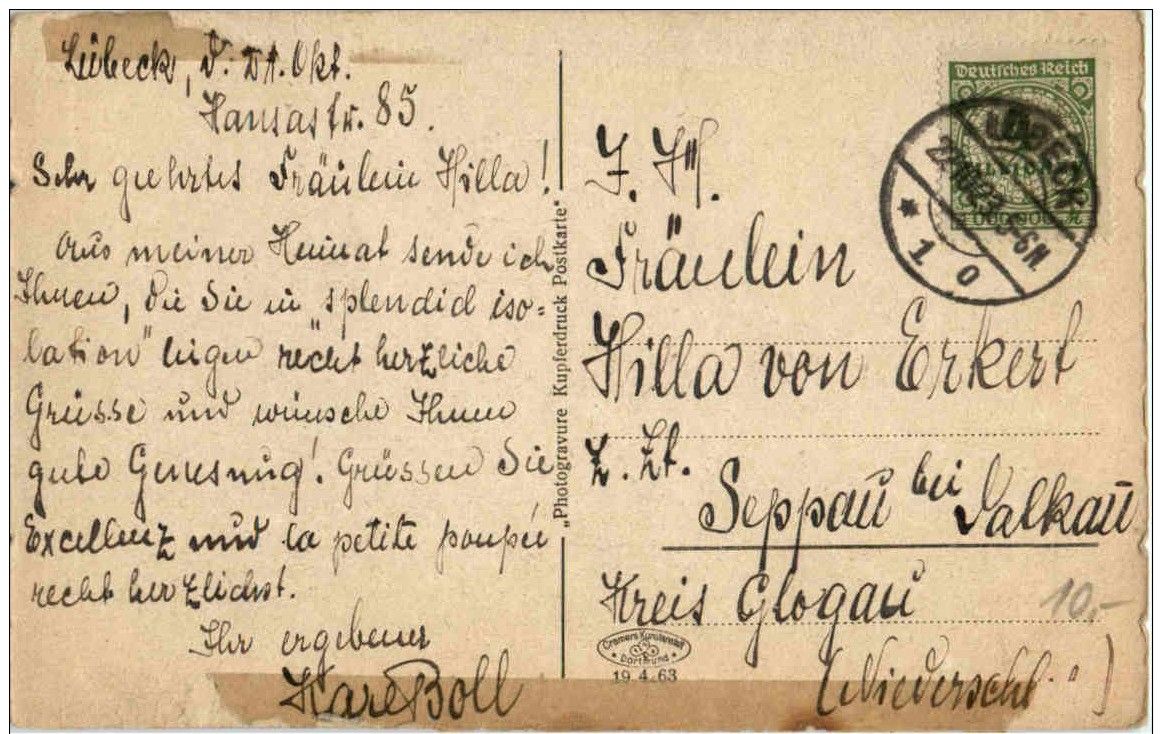 Lübeck, d. 21. Okt.
Hansastr. 85.
Sehr geehrtes Fräulein Hilla!
Aus meiner Heimat sende ich
Ihnen, die Sie in "splendid iso=
lation" liegen recht herzliche
Grüsse und wünsche Ihnen
gute Genesung! Grüssen Sie
Excellenz und la petite poupée
recht herzlichst.
Ihr ergebener
Karl Boll
„Photogravure Kupferdruck Postkarte"
Deutsches Reich
LÜBECK
5-6N.
* 1 o
Fräulein
Hilla von Erkert
z. Zt.
Seppau bei Dalkau
Kreis Glogau
(Niederschl.)
10,-
Cramers Kunstanstalt
Dortmund
19 4 63